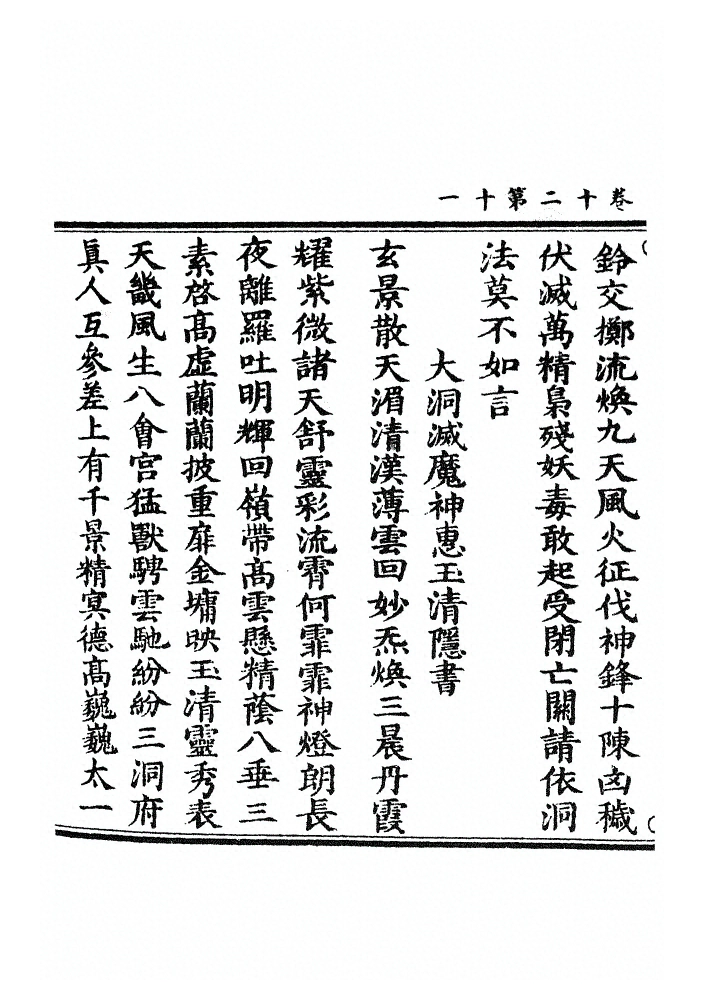 卷十二第十一
鈴交擲流煥九天風火征伐神鋒十陳凶穢
伏滅萬精梟殘妖毒敢起受閉亡關請依洞
法莫不如言
大洞滅魔神惠玉清隱書
玄景散天湄清漢薄雲回妙炁煥三晨丹霞
耀紫微諸天舒靈彩流霄何霏霏神燈朗長
夜離羅吐明輝回嶺帶高雲懸精蔭八垂三
素啓高虛蘭蘭披重扉金墉映玉清靈秀表
天畿風生八會宮猛獸騁雲馳紛紛三洞府
真人互參差上有千景精冥德高巍巍太一